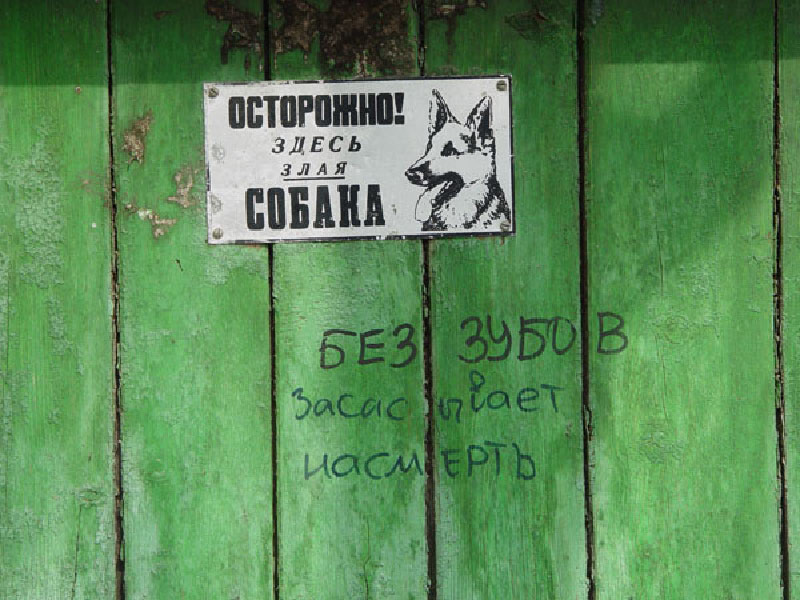 ОСТОРОЖНО!
ЗДЕСЬ
ЗЛАЯ
СОБАКА
БЕЗ ЗУБОВ
Засасывает
насмЕРТЬ